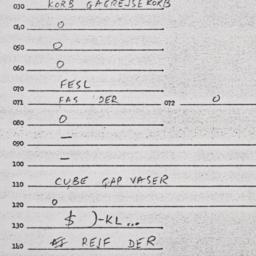 030 KORB GAGREJSEKORB
040 O
050 O
060 O
070 FESL
071 FAS DER 072 O
080 O
090 —
100 —
110 CUBE GAP VASER
120 o
130 $ )-KL...
140 REIF DER